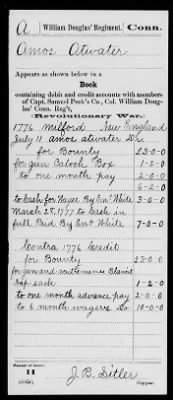 A | William Douglas' Regiment, | Conn.
Amos Atwater
Appears as shown below in a
Book
containing debit and credit accounts with members
of Capt. Samuel Peck's Co., Col. William Doug-
las' Conn. Reg't,
Revolutionary War.
1776 Milford New England
July 11 Amos Atwater Dr
for Bounty 23-0-0
for gun Catoch Box 1-2-0
to one month pay 2-0-0
6-2-0
to Cash for Wages By Ens White 3-0-0
March 28, 1777 to Cash in
full Paid By Ens White 7-0-0
Contra 1776 Credit
for Bounty 23-0-0
for Gun and acutrements Blanit
nap sack 1-2-0
to one month advance pay 2-0-0
to 6 month wagers Do 10-0-0
Book:
11
J. B. Sitler
Copyist.